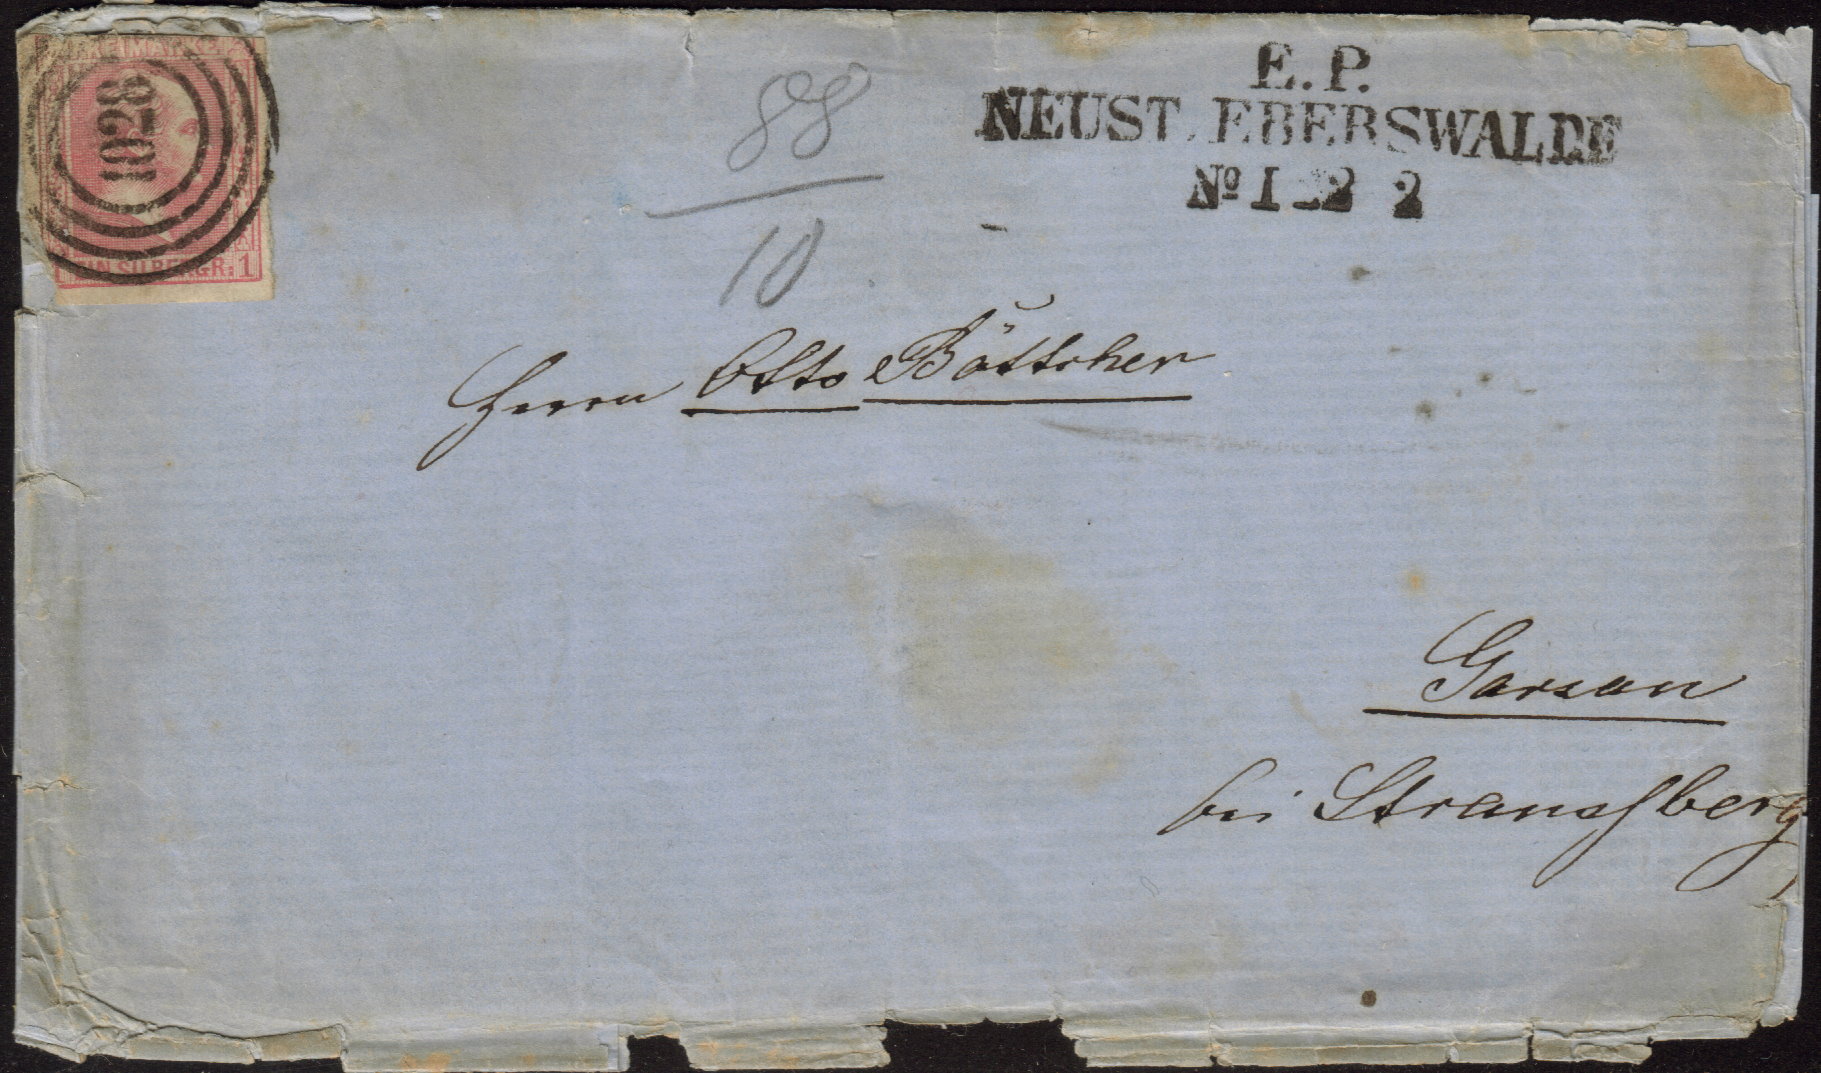 FREIMARKE
1028
EIN SILBERGR: 1
88
10
E. P.
NEUST. EBERSWALDE
No 1 2 2
Herrn Otto Böttcher
Garzau
bei Straussberg